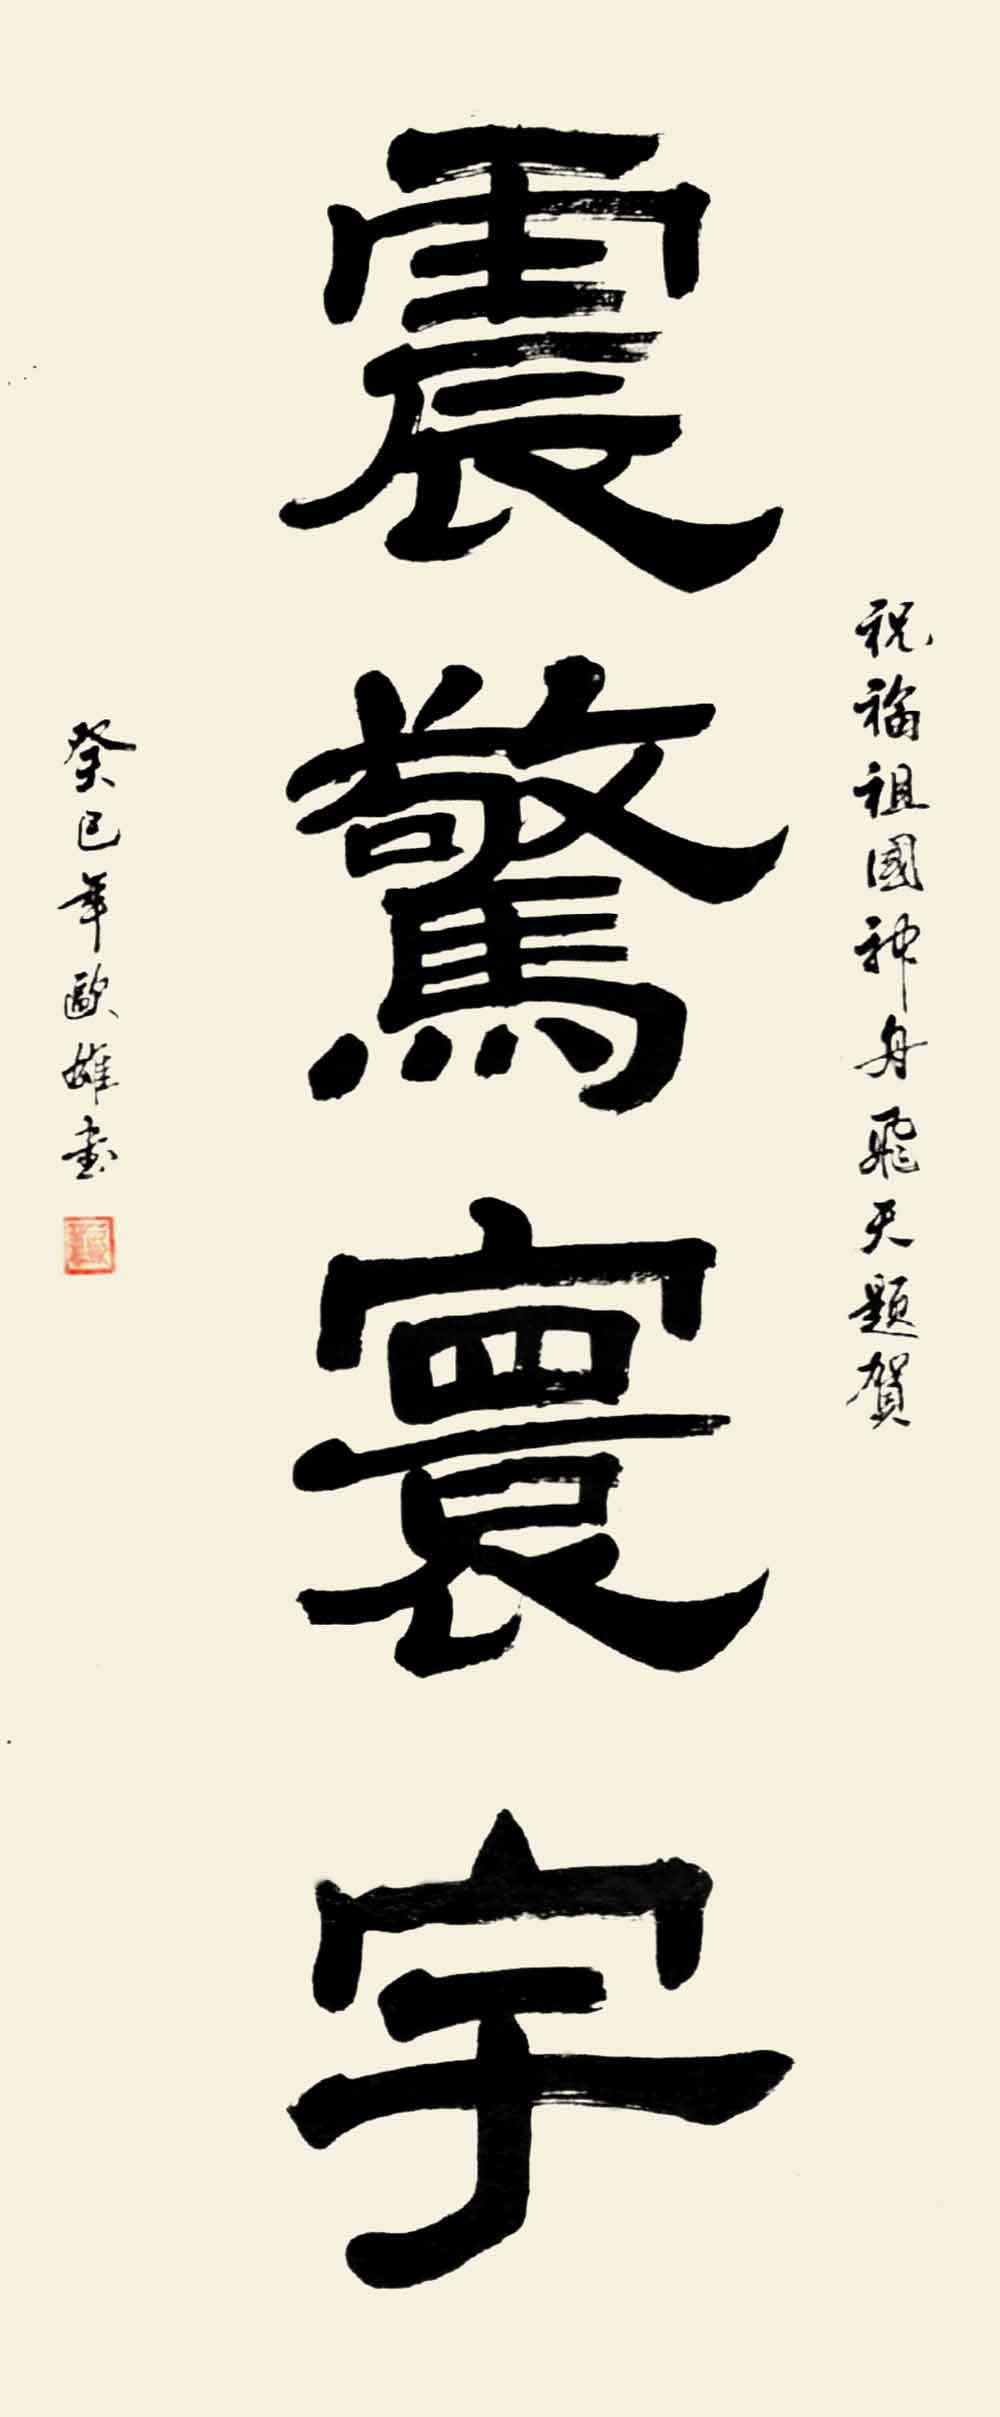 祝福祖國神舟飛天題賀
震驚寰宇
癸巳年歐雄書